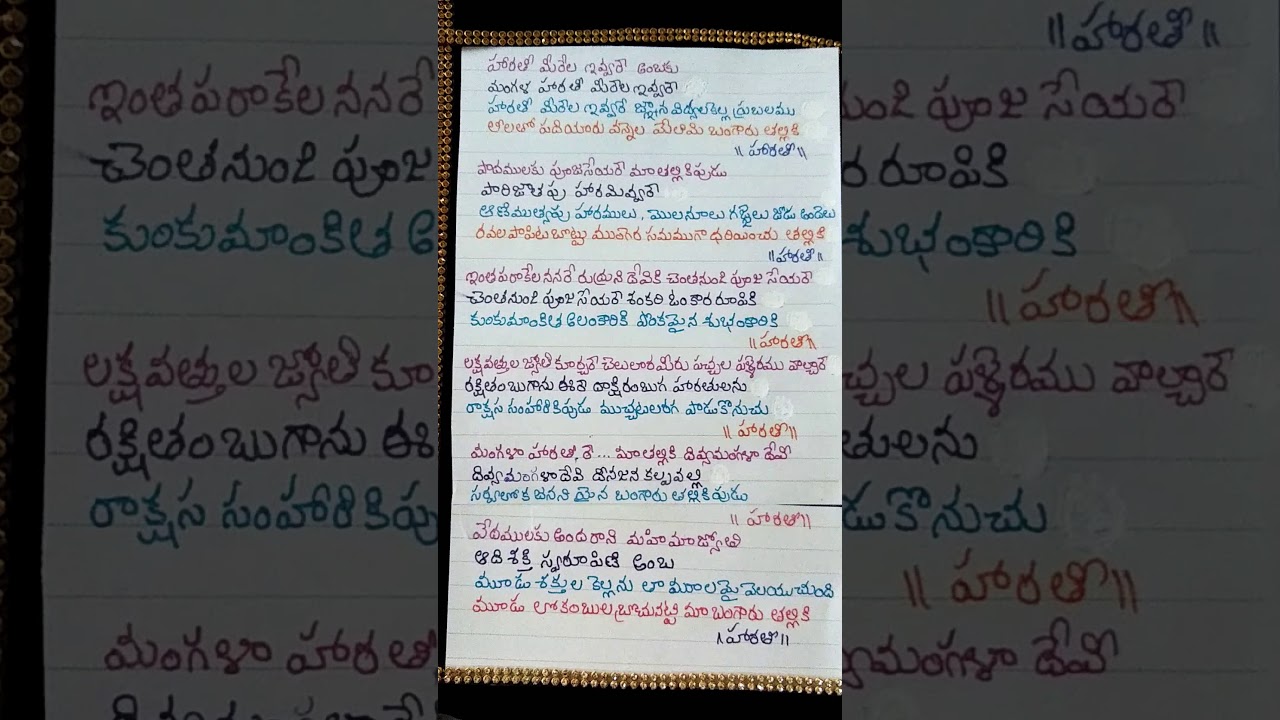 హారతి మీరేల ఇవ్వరే అంబకు
మంగళ హారతి మీరేల ఇవ్వరే
హారతి మీరేల ఇవ్వరే జ్ఞాన విద్యలకెల్ల ప్రబలము
తిలతో పదియారు వన్నెల మేలిమి బంగారు తల్లికి
॥ హారతి॥
పాదములకు పూజసేయరే మాతల్లికిపుడు
పారిజాతపు హారమివ్వరే
ఆణిముత్యపు హారములు, మొలనూలు గజ్జెలు జోడు అందెలు
రవల పాపిటబొట్టు ముక్కెర సమముగా ధరియించు తల్లికి
॥హారతి॥
ఇంతపరాకేల నననరే రుద్రుని దేవికి చెంతనుండి పూజ సేయరే
చెంతనుండి పూజ సేయరే శంకరి ఓంకార రూపికి
కుంకుమాంకిత అలంకారికి పొంకమైన శుభంకారికి
॥హారతి॥
లక్షవత్తుల జ్యోతి కూర్చరే చెలులారమీరు పచ్చల పళ్ళెరము వాల్చారే
రక్షితంబుగాను ఈశిరి దాక్షిరంబుగ హారతులను
రాక్షస సంహారికిపుడు ముచ్చటలరగ పాడుకొనుచు
॥ హారతి॥
మంగళా హారతి, రే... మాతల్లికి దివ్యమంగళా దేవి
దివ్యమంగళాదేవి దోసజన కల్పవల్లి
సర్వలోక జనని యైన బంగారు తల్లికిపుడు
॥ హారతి॥
వేదములకు అందరాని మహిమాజ్యోతి
ఆది శక్తి స్వరూపిణి అంబ
మూడు శక్తుల కెల్లను తా మూలమై వెలయుచుండి
మూడు లోకంబుల బ్రోచునట్టి మా బంగారు తల్లికి
॥హారతి॥